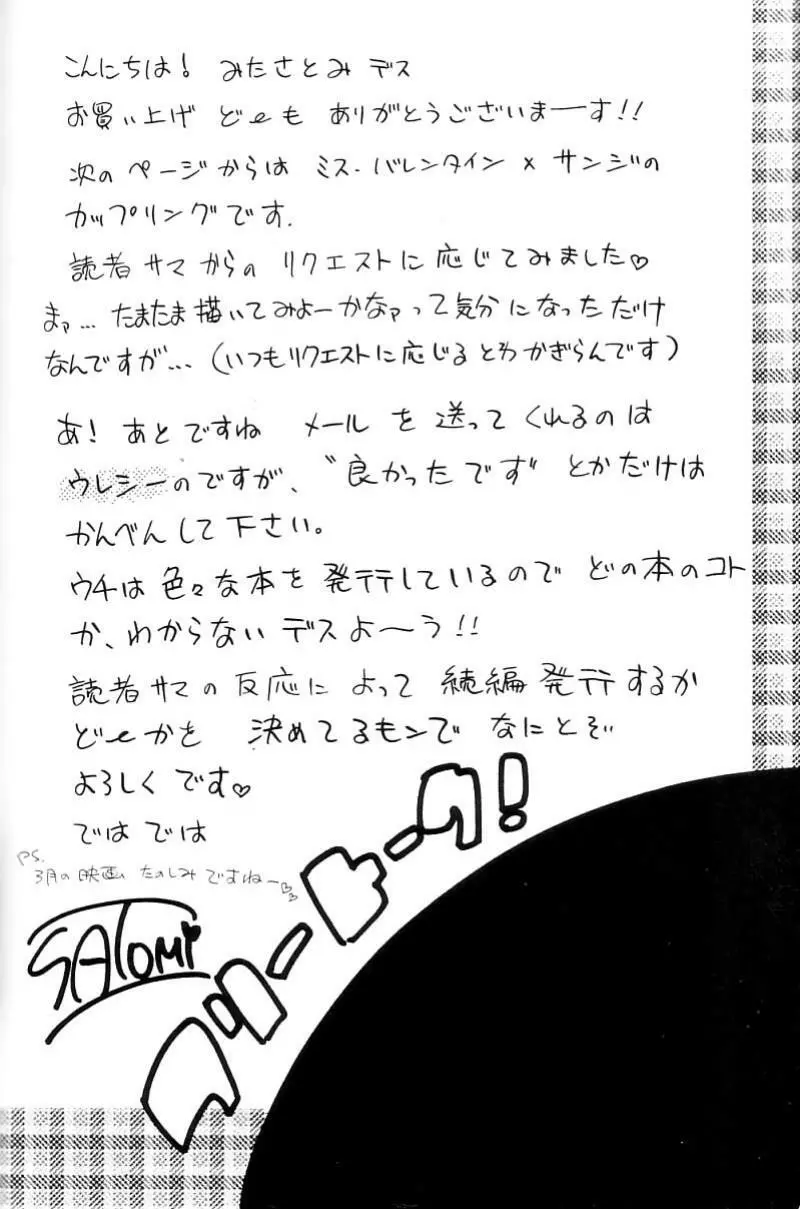 こんにちは! みたさとみ デス
お買い上げ どーも ありがとうございまーす!!
次の ページからは ミス・バレンタイン × サンジの
カップリングです.
読者サマからの リクエストに応じてみました♡
まァ… たまたま描いてみよーかなァって気分になっただけ
なんですが… (いつもリクエストに応じるとわかぎらんです)
あ! あとですね メールを送ってくれるのは
ウレシーのですが、“良かったです”とかだけは
かんべんして下さい。
ウチは色々な本を発行しているので どの本のコト
か、わからないデスよ〜う!!
読者サマの反応によって 続編発行するか
どーかを 決めてるモンで なにとぞ
よろしくです♡
ではでは
PS.
3月の映画 たのしみですねー♡♡
SATOMi
フリートーク!